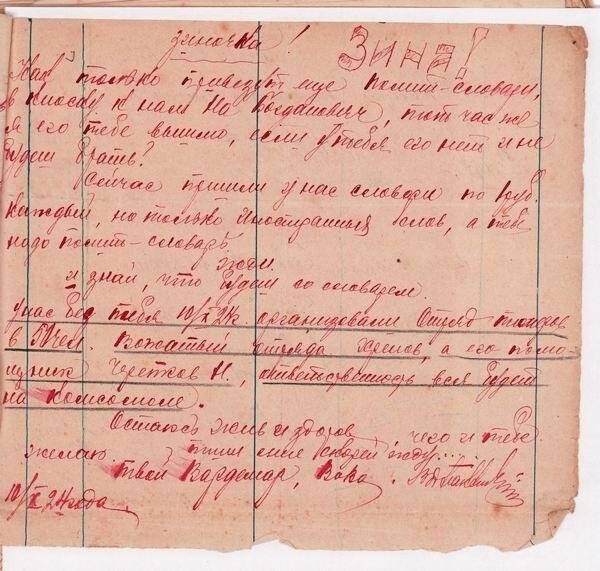 Зиночка! Зина!
Как только приведут еще полит-словари,
в киоску к нам на Богданович, тот час же
я его тебе вышлю, если у тебя его нет и не
будеш брать?
Сейчас пришли у нас словари по 1 руб.
каждый, но только иностранных слов, а тебе
надо полит-словарь.
Ждем.
и знай, что будеш со словарем.
у нас без тебя 10/X 24г организовали Отряд
в 50 чел. Вожатый отряда, а его помо-
щник Черетков Н., ответственность вся будет
на комсомоле.
Остаюсь жив и здоров, чего и тебе
желаю. Пиши мне скорей жду.....
твой Вова.
10/X 24 года.